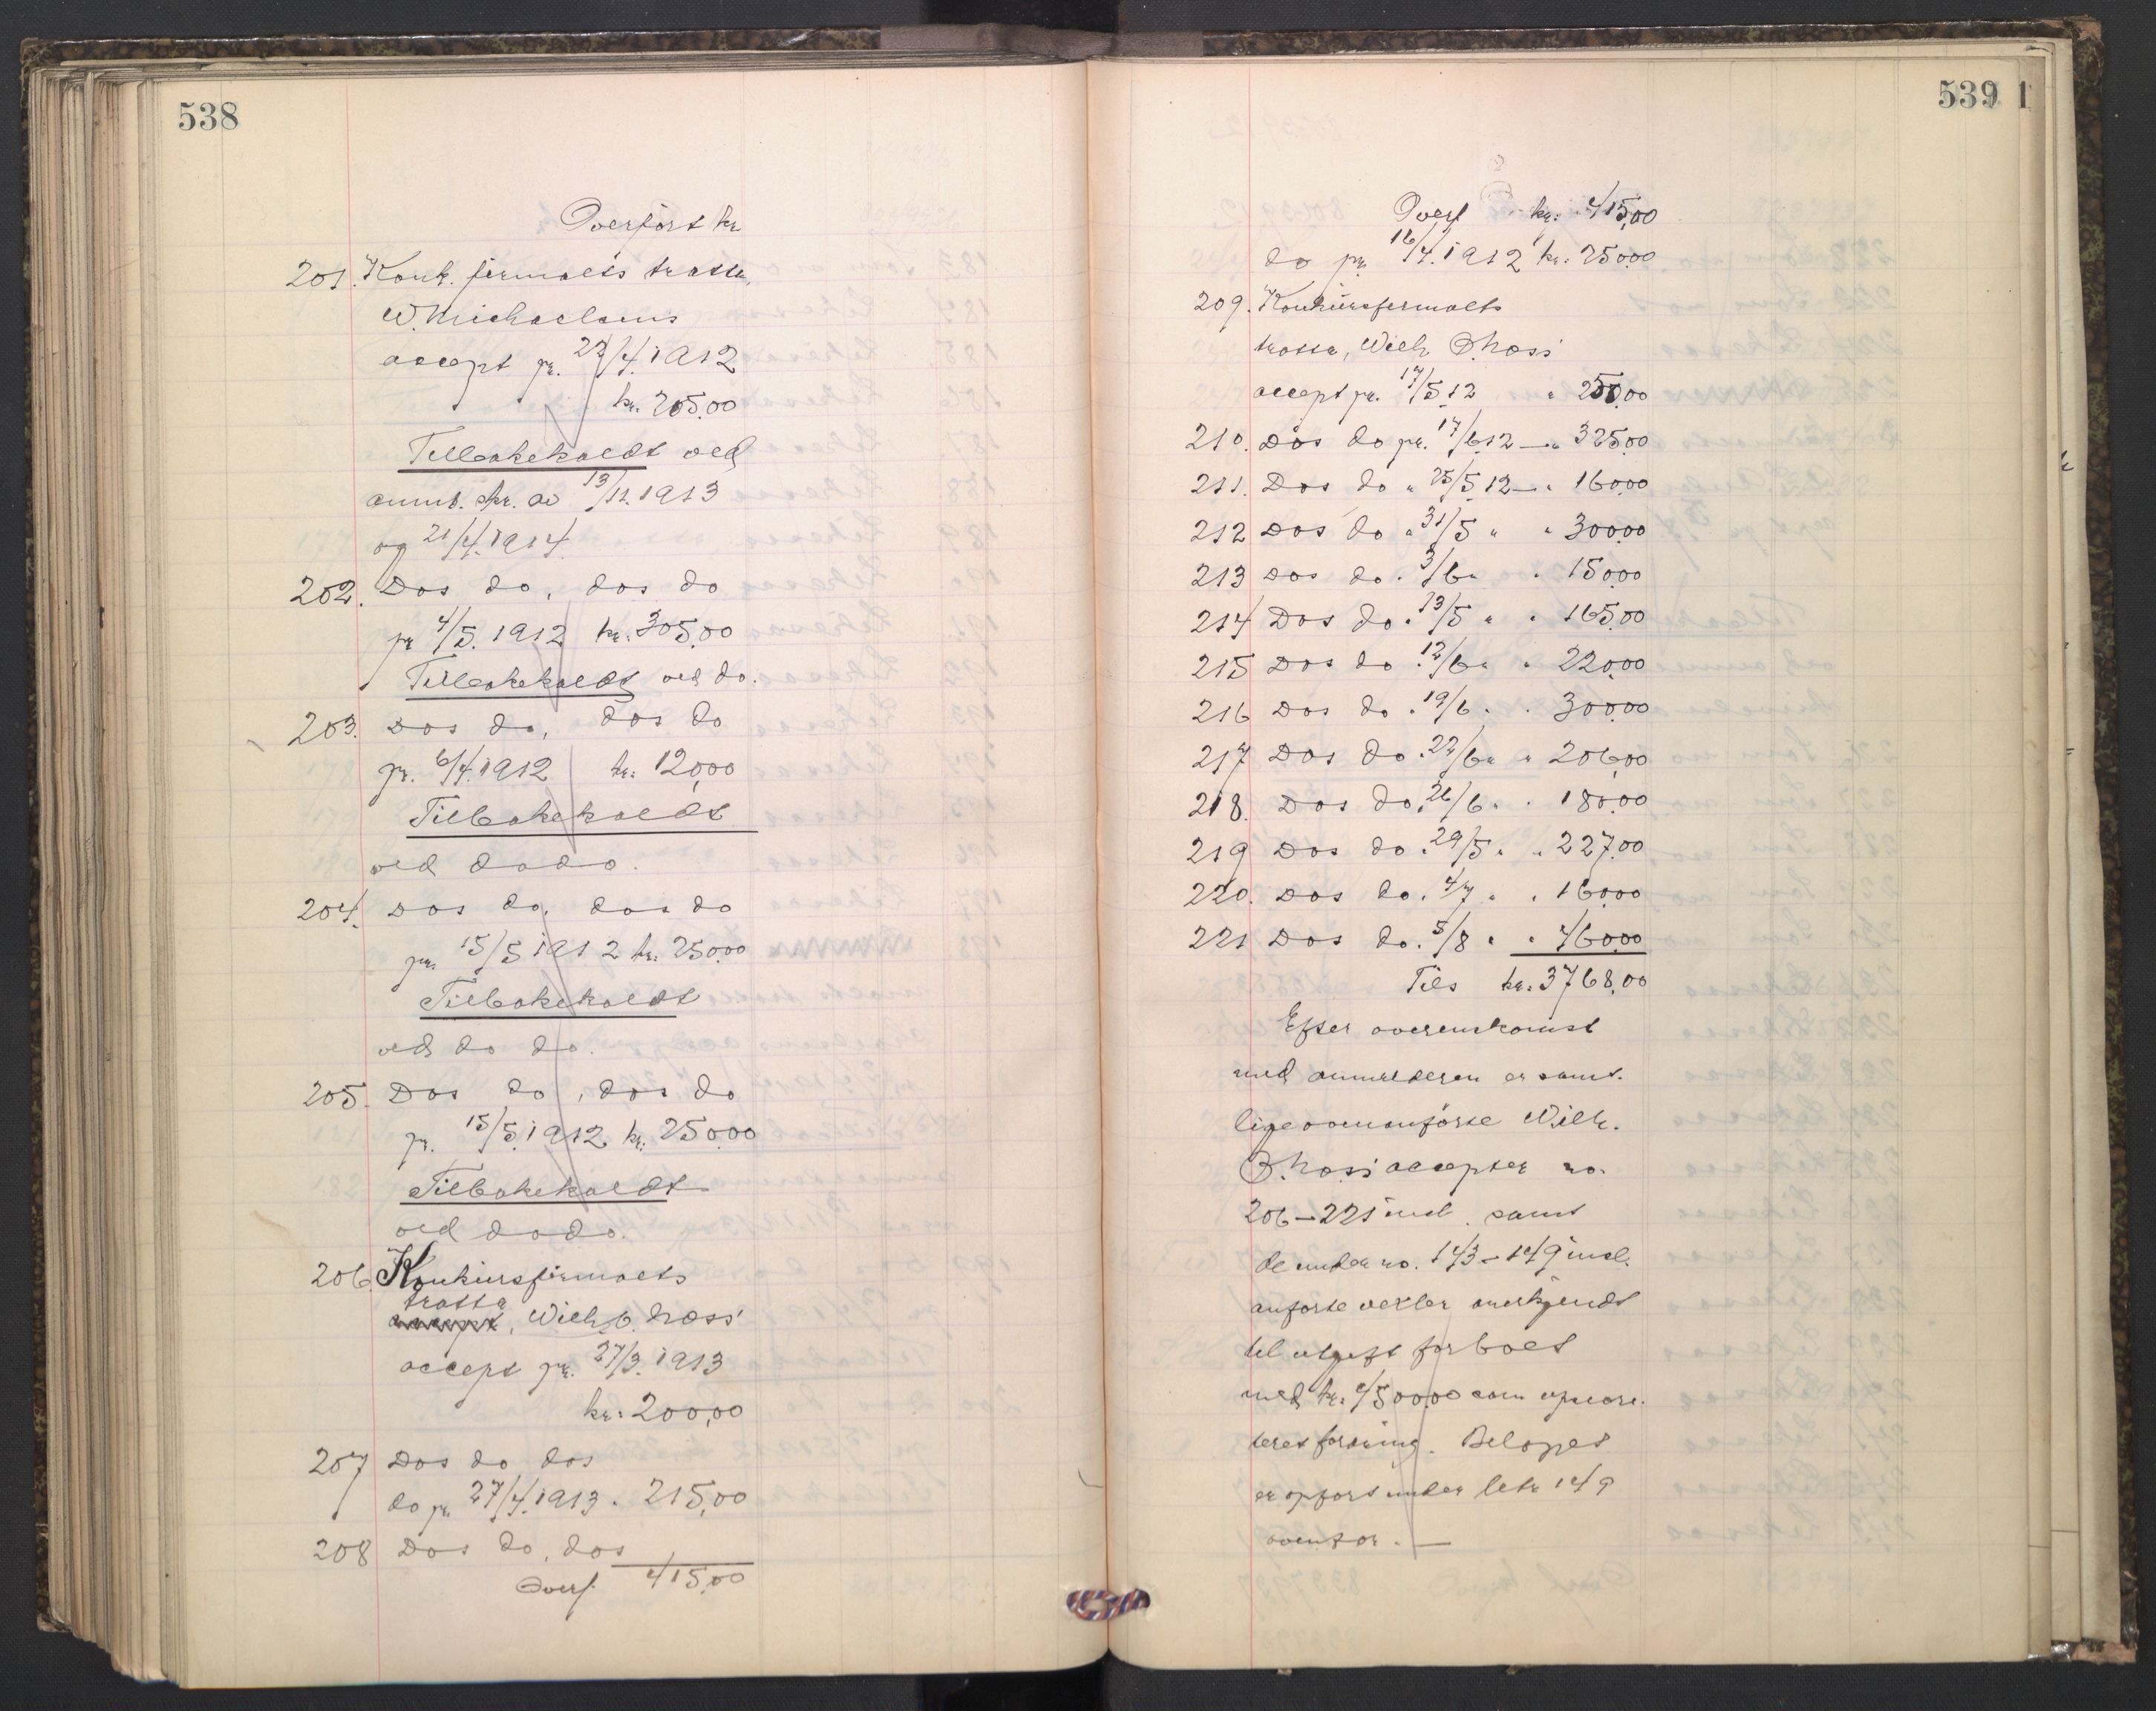 538
Overført kr
201. Konk. firmaets tratta,
W. Michaelsens
accept pr. 22/4. 1912
kr. 205.00
Tilbakekaldt ved
anmb. skr. av 13/11. 1913
og 21/4. 1914
202. Dos do, dos do
pr 4/5. 1912 kr. 305,00
Tilbakekaldt ved do.
203. Dos do, dos do
pr. 6/4. 1912 kr. 120,00
Tilbakekaldt
ved do do.
204. Dos do, dos do
pr. 15/5 1912 kr. 250.00
Tilbakekaldt
ved do do.
205. Dos do, dos do
pr. 15/5. 1912 kr. 250.00
Tilbakekaldt
ved do do.
206. Konkursfirmaets
tratta
accept, Wilh. B. Næss'
accept pr. 27/3. 1913
kr. 200,00
207 Dos do dos
do pr. 27/4. 1913 . 215,00
208 Dos do, dos
Overf. 415,00
539 1
Overf kr. 415,00
do pr. 16/4. 1912 kr. 250.00
209. Konkursfirmaets
tratta, Wilh B. Næss'
accept pr. 17/5 12 " 250.00
210. Dos do pr. 17/6 12 — " 325.00
211. Dos do " 25/5 12 — " 160.00
212 Dos do " 31/5 " " 300.00
213 Dos do . 3/6 " . 150.00
214 Dos do . 13/5 " . 165.00
215 Dos do . 12/6 " " 220.00
216 Dos do . 19/6 . . 300.00
217 Dos do . 22/6 " " 206,00
218. Dos do . 26/6 . . 180.00
219 Dos do . 29/5 " " 227.00
220. Dos do . 4/7 . . 160.00
221 Dos do . 5/8 " " 460.00
Tils kr. 3768,00
Efter overenskomst
med anmelderen er samt.
lige ovenanførte Wilh.
B. Næss' accepter no.
206 — 221 incl. samt
de under no. 143 — 149 incl.
anførte vexler anerkjendt
til utgift for boet
med kr. 4500.00 som uprior.
teret fordring. Beløpet
er opført under letr 149
ovenfor. —